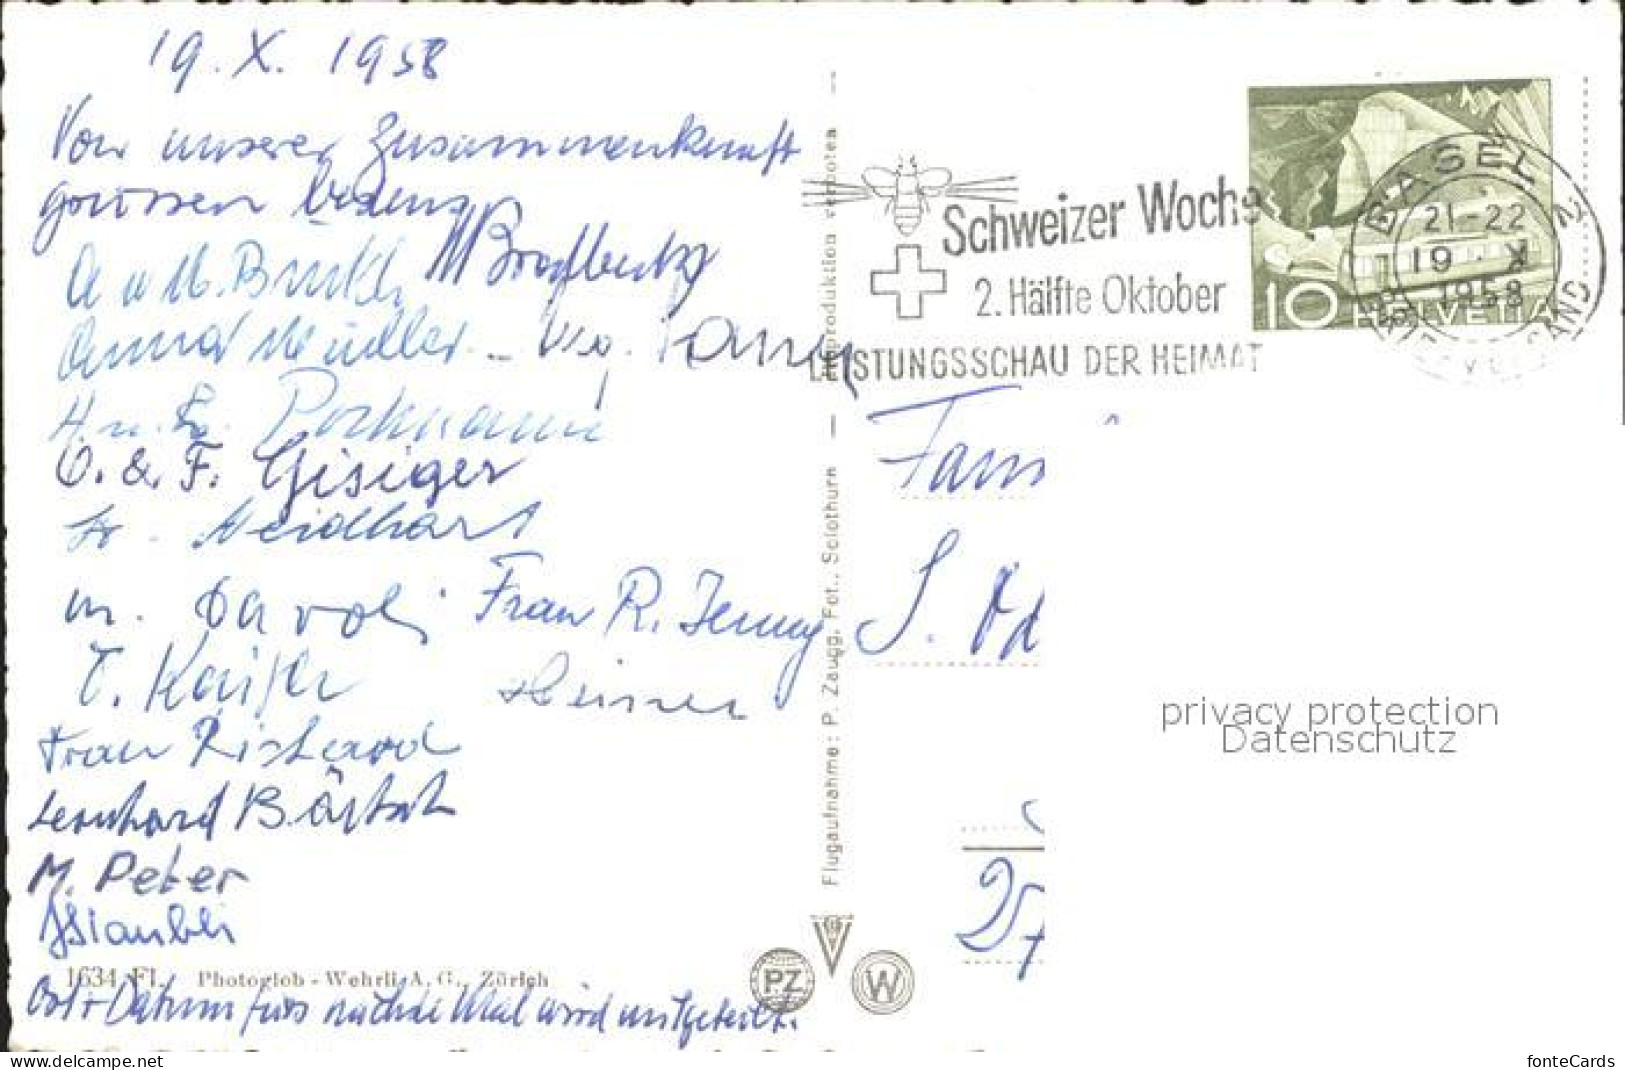 19. X. 1958
Von unserer Zusammenkunft
grüssen bestens
A u M. Bruck
M Brodbeck
Anna Müller - Vig.
H. u. E. Porkmann
O. & F. Gisiger
Fr. Neidhart
m. Davoli Frau R. Jenny
T. Kaiser Heiner
Frau Richard
Leonhard Bärtsch
M. Peter
Ort + Datum fürs nächste Mal wird mitgeteilt.
1634 Fl. Photoglob - Wehrli A. G., Zürich
Flugaufnahme: P. Zaugg, Fot., Solothurn — Reproduktion verboten —
PZ
W
Schweizer Woche
2. Hälfte Oktober
LEISTUNGSSCHAU DER HEIMAT
BASEL 2
21-22
19. X
1958
10 HELVETIA
Fam
S.
privacy protection
Datenschutz
my-meteor.com
fonteCards